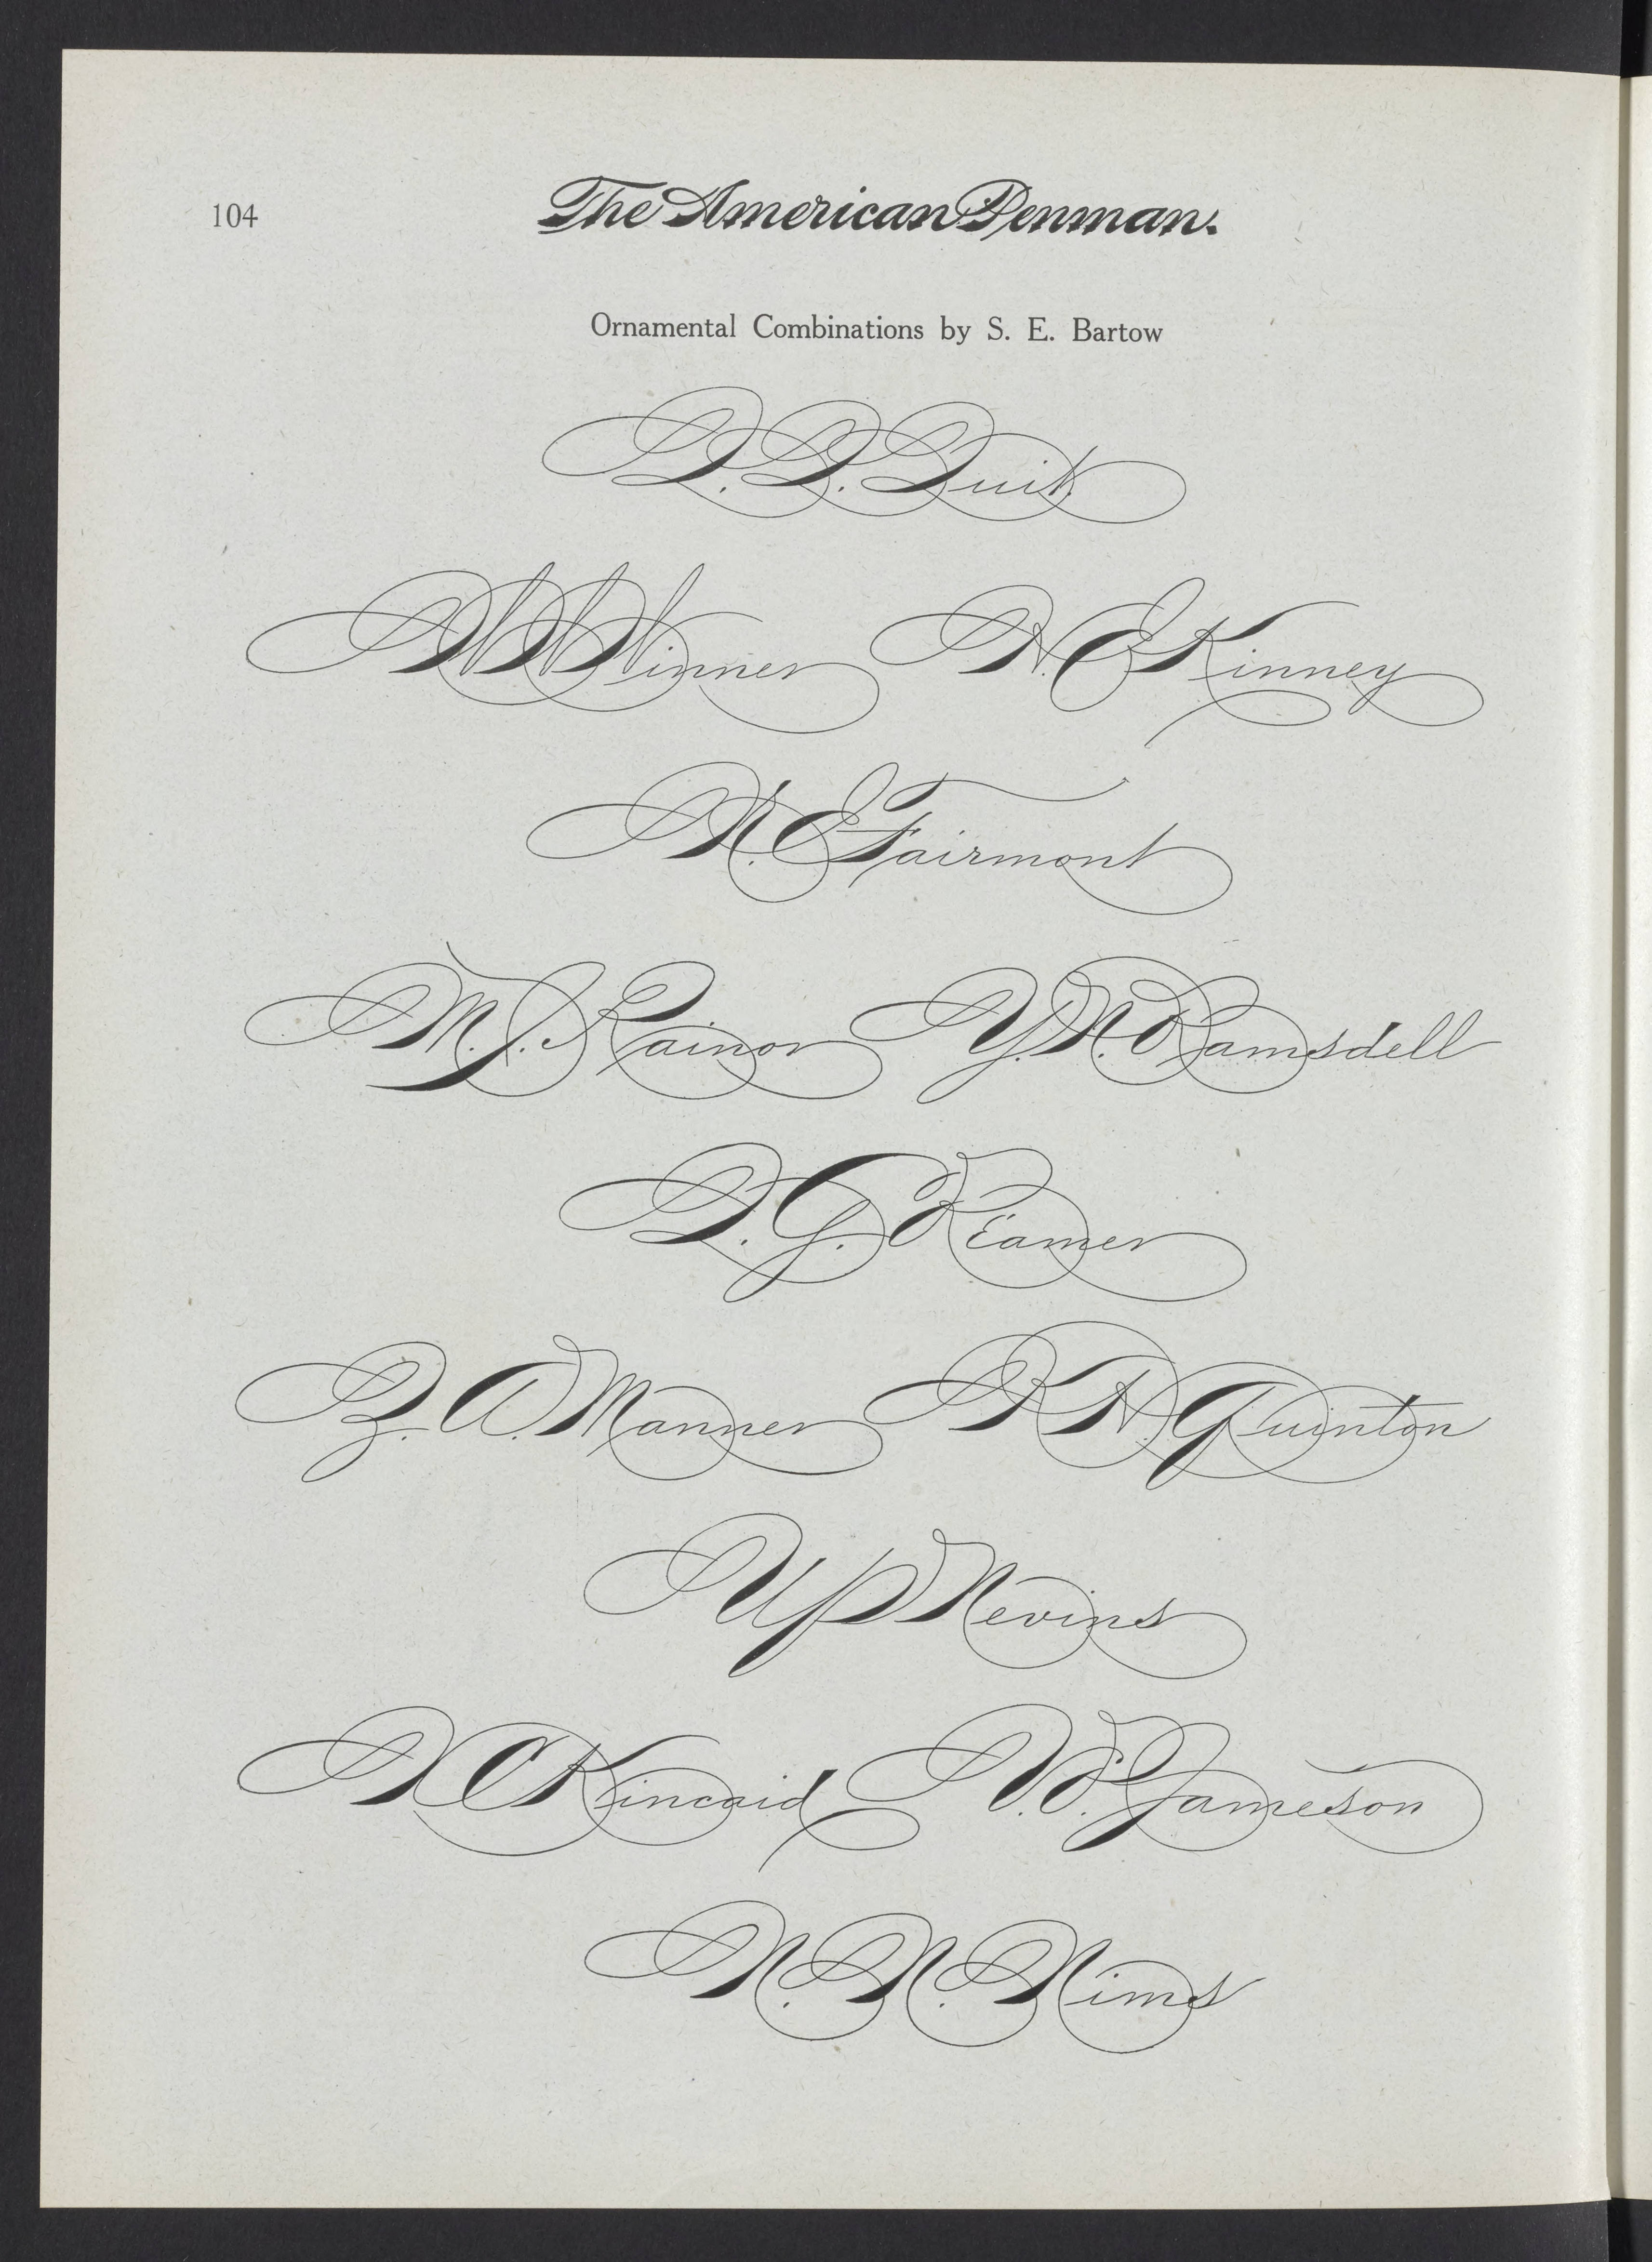 104
The American Penman.
Ornamental Combinations by S. E. Bartow
Q. Q. Quit
W W Winner H. E Kinney
N. E Fairmont
M. J. Rainor Y. N. Ramsdell
Q. G. Reamer
Z. A. Manner R H. Quinton
U P Nevins
X C Kincaid V. V. Jameson
N. N. Nims